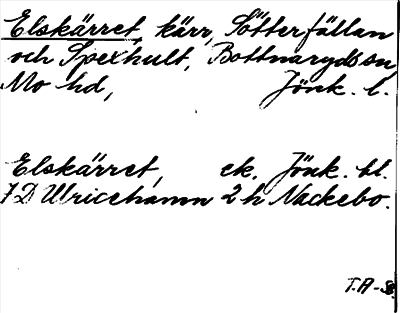 Elskärret, kärr, Sötterfällan
och Spexhult, Bottnaryds sn,
Mo hd, Jönk. l.
Elskärret, ek. Jönk. bl.
7D Ulricehamn 2h Nackebo.
T.A-58.